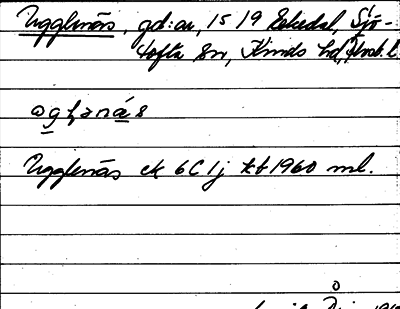 Ugglenäs, gd:ar, 15 19 Eskedal, Sjö-
tofta sn, Kinds hd, Älvsb. l.
Ugglenäs ek 6C 1j kb 1960 ml.